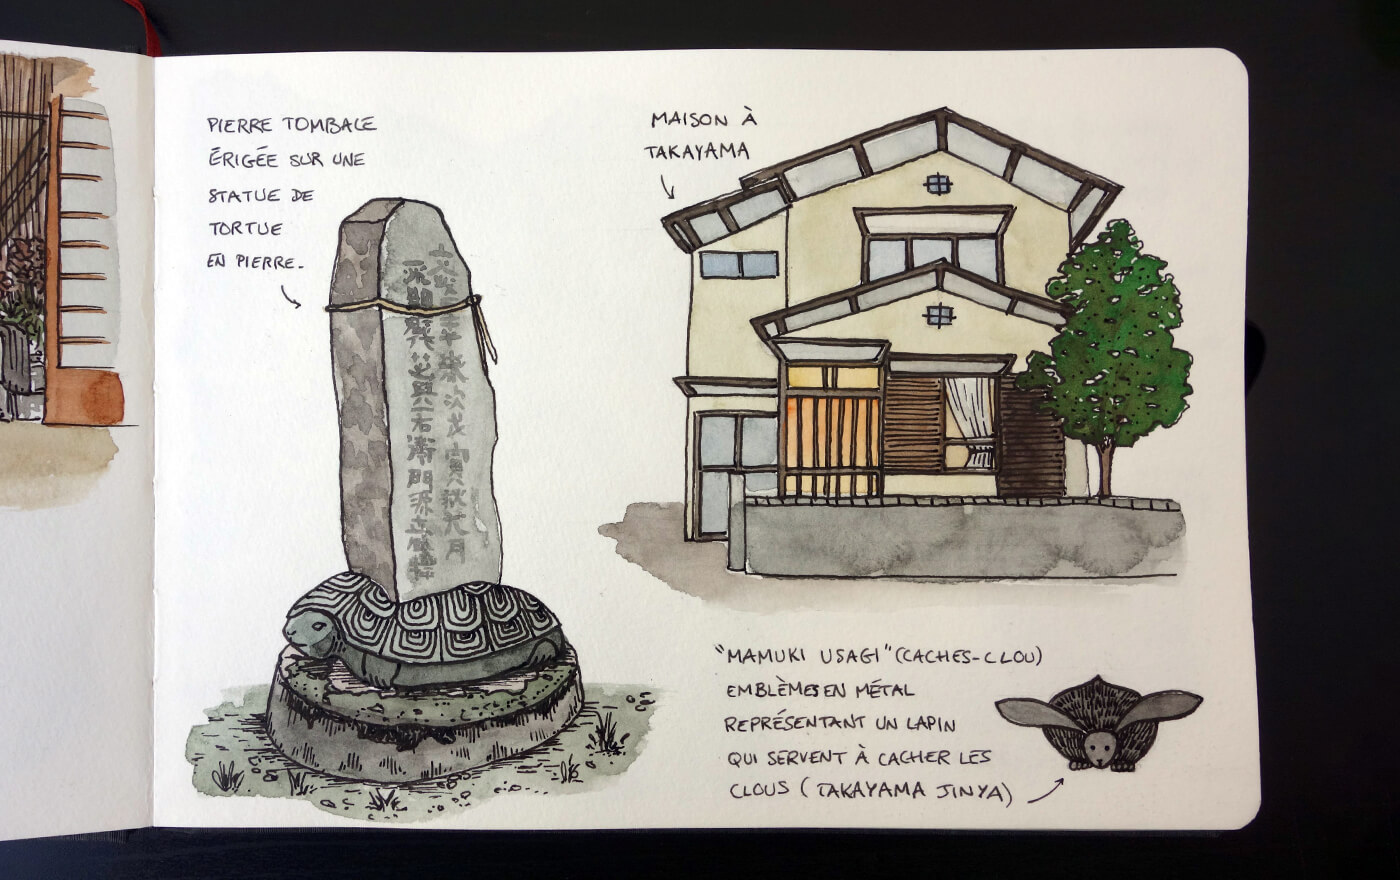 PIERRE TOMBALE
ÉRIGÉE SUR UNE
STATUE DE
TORTUE
EN PIERRE.
MAISON À
TAKAYAMA
"MAMUKI USAGI" (CACHES-CLOU)
EMBLÈMES EN MÉTAL
REPRÉSENTANT UN LAPIN
QUI SERVENT À CACHER LES
CLOUS (TAKAYAMA JINYA)